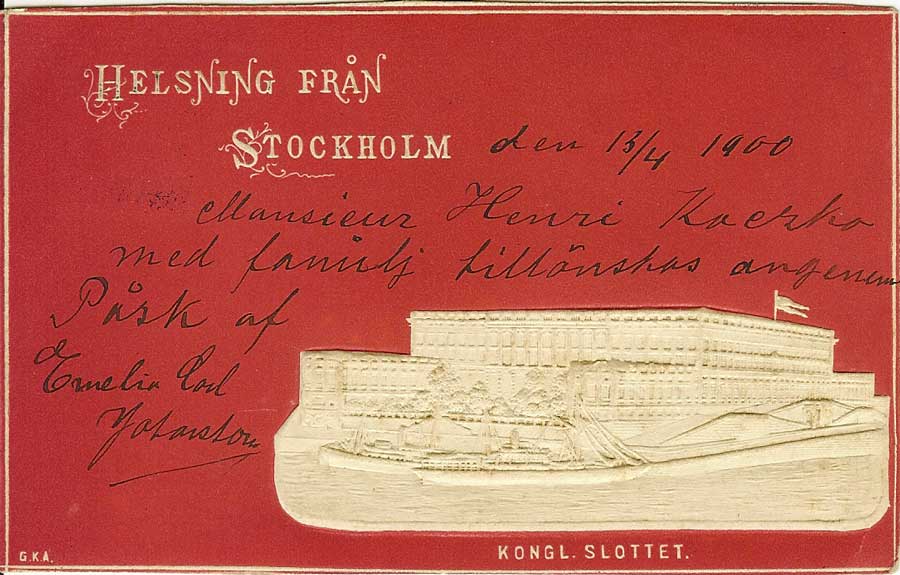 HELSNING FRÅN
STOCKHOLM
den 13/4 1900
Monsieur Henri Kaczko
med familj tillönskas angenem
Påsk af
Emelia Carl
G.K.A.
KONGL. SLOTTET.